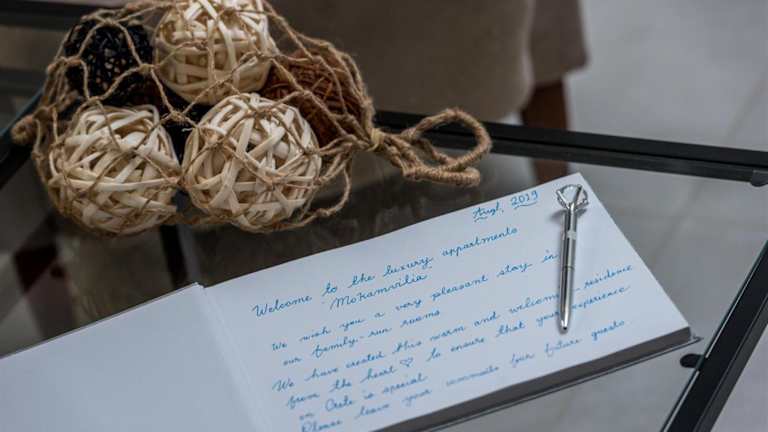 Augl, 2019
Welcome to the luxury appartments
"Mokamvilia"
We wish you a very pleasant stay in
our family-run rooms.
We have created this warm and welcoming residence
from the heart ♡ to ensure that your experience
on Crete is special
Please leave your commails for future guests